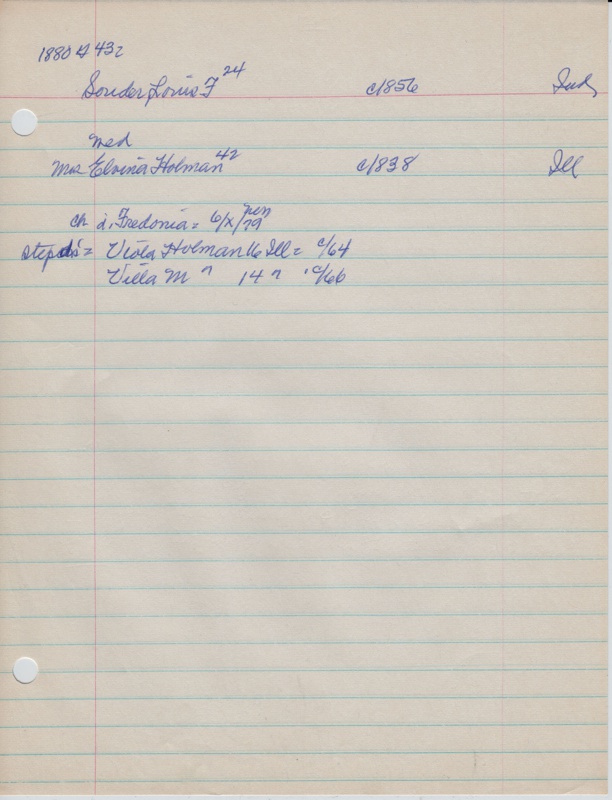 1880 # 432
Souder Louis F 24 c/856 Ind
med
Mrs Elvina Holman 42 c/838 Ill
ch d. Fredonia = 6/x/79
step ds = Viola Holman 16 Ill = c/64
Villa M " 14 " c/66